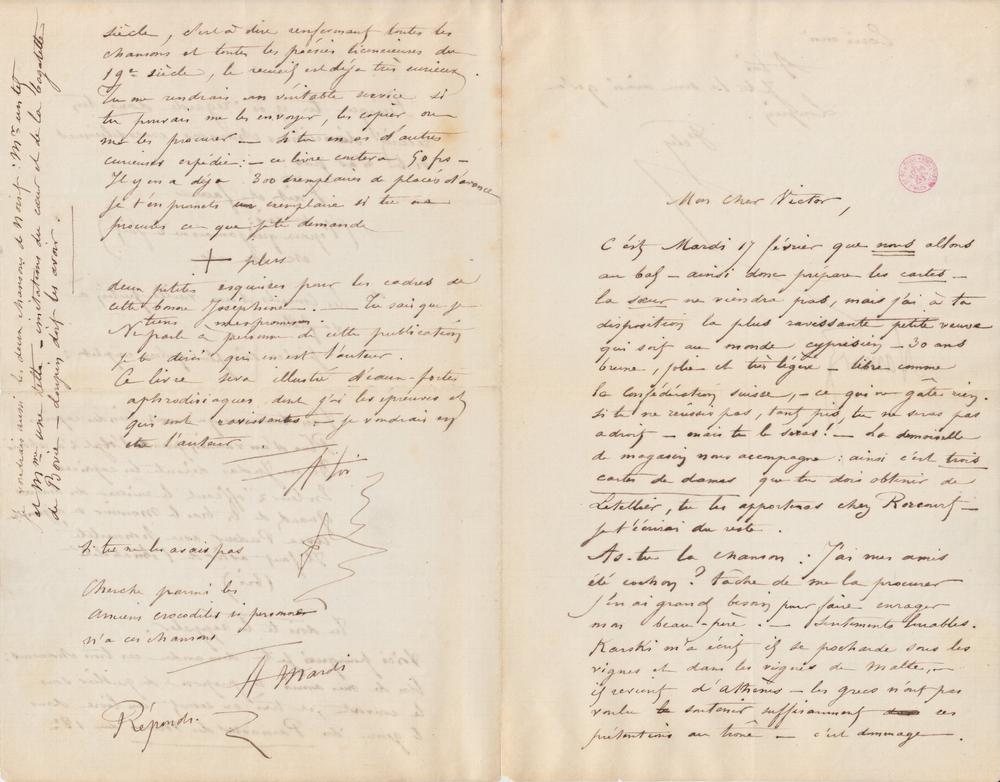 Mon cher Victor,
C'est Mardi 17 février que nous allons
au bal – ainsi donc prépare les cartes –
la sœur ne viendra pas, mais j'ai à ta
disposition la plus ravissante petite veuve
qui soit au monde cyprésien – 30 ans
brune, jolie et très légère – libre comme
la Confédération suisse, – ce qui ne gâte rien.
si tu ne réussis pas, tant pis, tu ne seras pas
adroit – mais tu le seras! – La demoiselle
de magasin nous accompagne : ainsi c'est trois
cartes de dames que tu dois obtenir de
Letellier, tu les apporteras chez Rozcourt –
je t'écrirai du reste.
As-tu la chanson : J'ai mes amis
été cochon ? tâche de me la procurer
j'en ai grand besoin pour faire enrager
mon beau-père. – Sentiments louables.
Karski m'a écrit il se pocharde sous les
vignes et dans les vignes de Malte, –
il revient d'Athènes – les grecs n'ont pas
voulu le soutenir suffisamment dans ces
prétentions au trône – c'est dommage –.
siècle, c'est à dire renfermant toutes les
chansons et toutes les poésies licencieuses du
19e siècle, le recueil est déjà très curieux.
Tu me rendrais un véritable service si
tu pouvais me les envoyer, les copier ou
me les procurer – si tu en as d'autres
curieuses expédie : – ce livre coutera 50 frs –
Il y en a déjà 300 exemplaires de placés d'avance
je t'en promets un exemplaire si tu me
procures ce que je te demande
+ plus
deux petites esquisses pour les cadres de
cette bonne Joséphine. – Tu sais que je
tiens mes promesses.
Ne parle à personne de cette publication
je te dirai qui en est l'auteur.
Ce livre sera illustré d'eaux-fortes
aphrodisiaques dont j'ai les épreuves et
qui sont ravissantes – je voudrais en
être l'auteur
A toi
si tu ne les avais pas
Cherche parmi les
anciens crocodiles si personne
n'a ces chansons
A Mardi
Réponds.
Je voudrais aussi les deux chansons de Noisf : Mr un tel
et Mme une telle – imitations du cœur et de la bagatelle
de Bovie – doit les avoir.